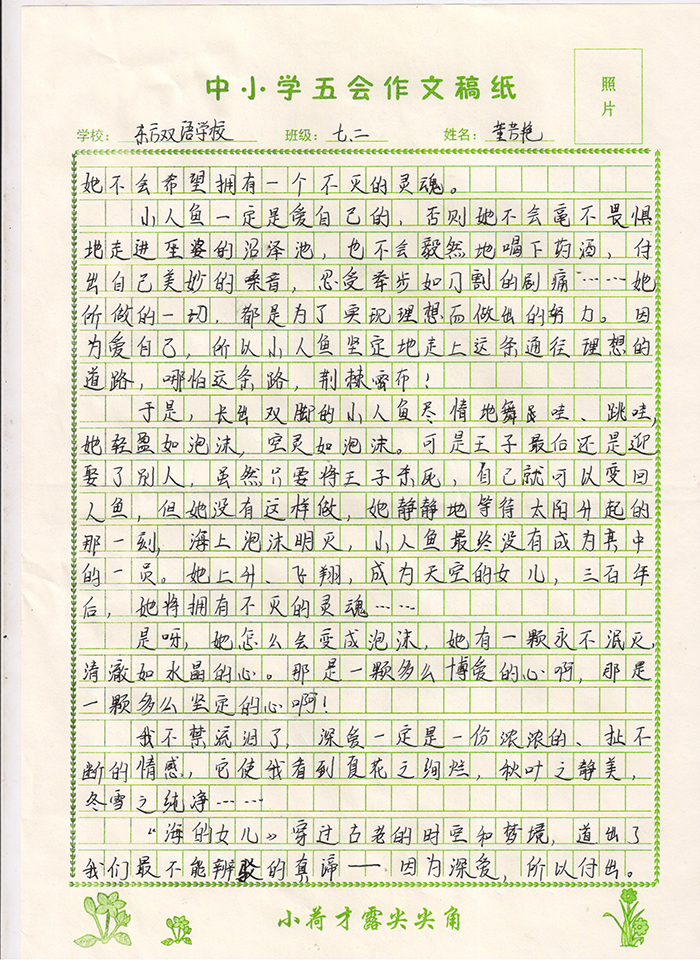 中小学五会作文稿纸
照片
学校：东方双语学校 班级：七、二 姓名：董芳艳
她不会希望拥有一个不灭的灵魂。
小人鱼一定是爱自己的，否则她不会毫不畏惧
地走进巫婆的沼泽池，也不会毅然地喝下药酒，付
出自己美妙的嗓音，忍受举步如刀割的剧痛……她
所做的一切，都是为了实现理想而做出的努力。因
为爱自己，所以小人鱼坚定地走上这条通往理想的
道路，哪怕这条路，荆棘密布！
于是，长出双脚的小人鱼尽情地舞哇、跳哇，
她轻盈如泡沫，空灵如泡沫。可是王子最后还是迎
娶了别人，虽然只要将王子杀死，自己就可以变回
人鱼，但她没有这样做，她静静地等待太阳升起的
那一刻，海上泡沫明灭，小人鱼最终没有成为其中
的一员。她上升、飞翔，成为天空的女儿，三百年
后，她将拥有不灭的灵魂……
是呀，她怎么会变成泡沫，她有一颗永不泯灭，
清澈如水晶的心。那是一颗多么博爱的心啊，那是
一颗多么坚定的心啊！
我不禁流泪了，深爱一定是一份浓浓的、扯不
断的情感，它使我看到夏花之绚烂，秋叶之静美，
冬雪之纯净……
“海的女儿》穿过古老的时空和梦境，道出了
我们最不能辨驳的真谛——因为深爱，所以付出。
小荷才露尖尖角